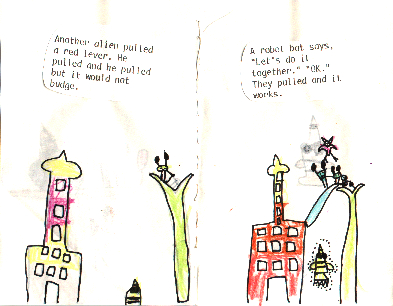 Another alien pulled
a red lever. He
pulled and he pulled
but it would not
budge.
A robot bat says,
"Let's do it
together." "OK."
They pulled and it
works.